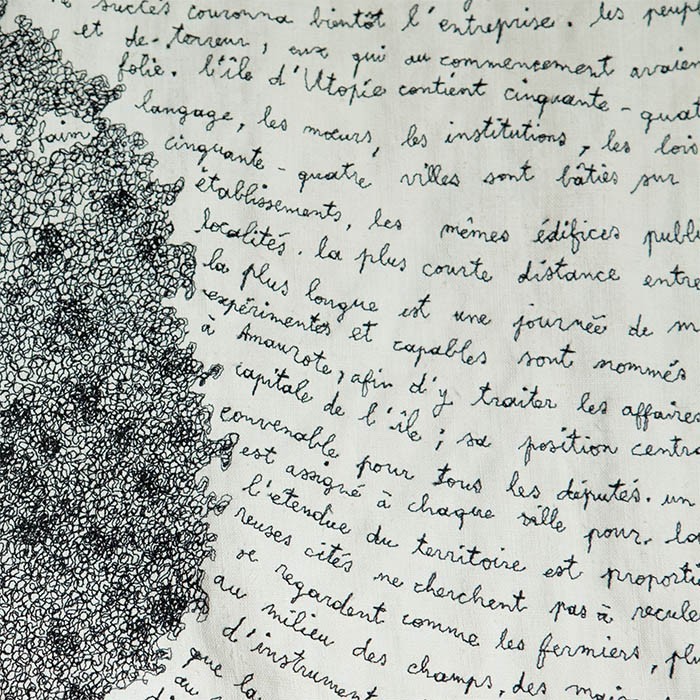 succès couronna bientôt l'entreprise. les peupl
et de terreur, eux qui au commencement avaien
folie. l'île d'Utopie contient cinquante-quat
langage, les mœurs, les institutions, les lois
faim
cinquante-quatre villes sont bâties sur
établissements, les mêmes édifices publi
localités. la plus courte distance entre
la plus longue est une journée de m
expérimentés et capables sont nommés
à Amaurote, afin d'y traiter les affaires
capitale de l'île; sa position centra
convenable pour tous les députés. un
est assigné à chaque ville pour. la
l'étendue du territoire est proporti
reuses cités ne cherchent pas à recule
se regardent comme les fermiers, plu
au milieu des champs, des mai
d'instrument
que la
au